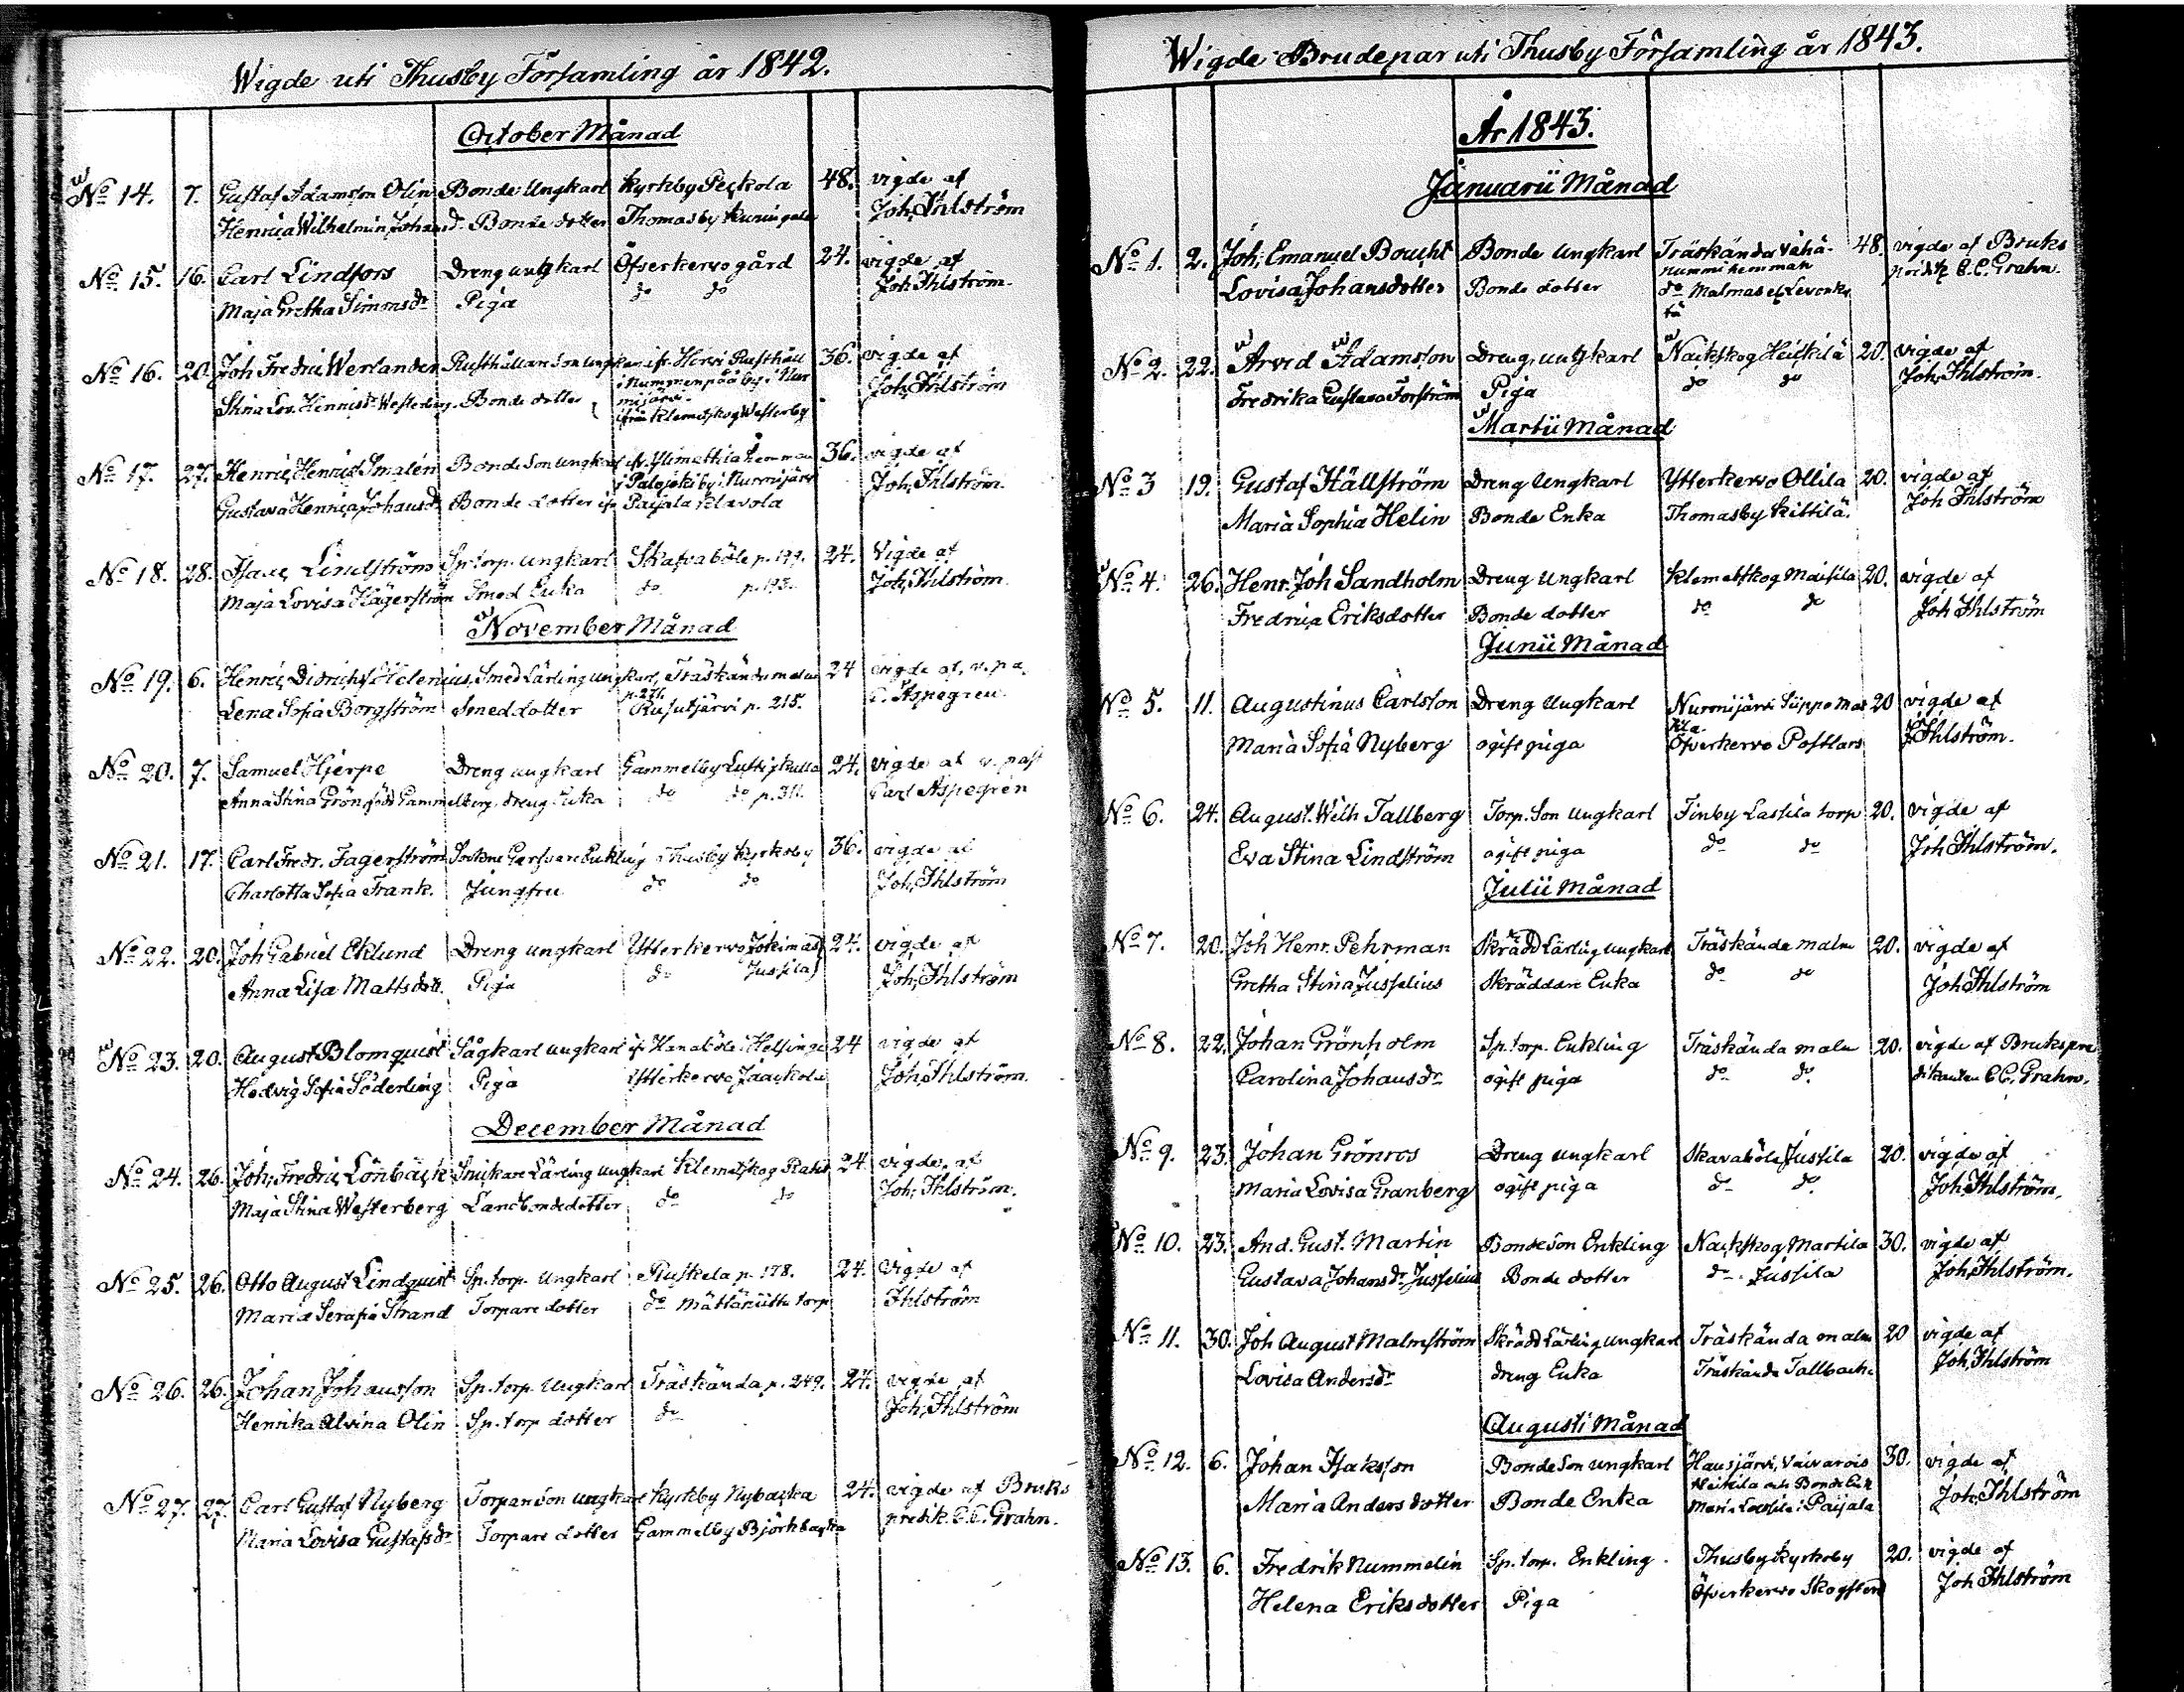 Wigde uti Thusby Församling år 1842.
October Månad
No 14. 7. Gustaf Adamsson Olin Bonde Ungkarl Kyrkby Peckola 48. vigde af
Henrica Wilhelmin Johansdr Bonde dotter Thomasby Kuningala Joh. Ihlström
No 15. 16. Carl Lindfors Dreng ungkarl Öfverkervo gård 24. vigde af
Maja Gretha Simonsdr Piga do do Joh Ihlström.
No 16. 20. Joh Fredric Werlander Rusthållare Son ungkarl ifr. Hervi Rusthåll 36. vigde af
i Nummenpää by i Nur
mijärvi.
Stina Lov. Henricsdr Westerberg. Bonde dotter ifrån Klemetskog Westerby Joh. Ihlström
No 17. 27. Henric Henricss Smalén Bonde Son ungkarl ifr. Ylimattila hemman 36. vigde af
i Palojoki by i Nurmijärvi
Gustava Henrica Johansdr Bonde dotter ifr Paijala Klavola Joh. Ihlström.
No 18. 28. Isac Lindström Sp. torp. ungkarl Skafvaböle p. 199. 24. Vigde af
Maja Lovisa Hägerström Smed Enka do p. 193. Joh. Ihlström
November Månad
No 19. 6. Henric Didrichss Helenius, Smed Lärling ungkarl, Träskända malm 24 vigde af, v. pa.
p. 271.
Lena Sofia Borgström Smed dotter Rusutjärvi p. 215. C. Aspegren.
No 20. 7. Samuel Hjerpe Dreng ungkarl Gammelby Lustigkulla 24. vigde af v. past
Anna Stina Grönqvist Gammelberg. dreng Enka do do p. 311. Carl Aspegrén
No 21. 17. Carl Fredr. Fagerström Garfvare Enkling Thusby Kyrkoby 36. vigde af
Charlotta Sofia Frank. Jungfru do do Joh. Ihlström
No 22. 20. Joh Gabriel Eklund Dreng ungkarl Ytterkervo Jokimas 24. vigde af
Anna Lisa Mattsdott. Piga do Jussila Joh. Ihlström
No 23. 20. August Blomquist Sågkarl ungkarl ifr Hanaböle i Helsinge 24 vigde af
Hedvig Sofia Söderling Piga Ytterkervo Jaackola Joh. Ihlström.
December Månad
No 24. 26. Joh. Fredric Lönbäck Snickare Lärling ungkarl Klemetskog 24. vigde af
Maja Stina Westerberg Landbondedotter do do Joh. Ihlström.
No 25. 26. Otto August Lindquist Sp. torp. Ungkarl Ruskela p. 178. 24. Vigde af
Maria Serafia Strand Torpare dotter do Mätläniittu torp Ihlström
No 26. 26. Johan Johansson Sp. torp. Ungkarl Träskända p. 249. 24. vigde af
Henrika Alvina Olin Sp. torp dotter do Joh, Ihlström
No 27. 27. Carl Gustaf Nyberg Torpareson ungkarl Kyrkby Nybacka 24. vigde af Bruks
Maria Lovisa Gustafsdr Torpare dotter Gammelby Björkbacka predik. C.C. Grahn.
Wigde Brudepar uti Thusby Församling år 1843.
År 1843.
Januarii Månad
No 1. 2. Joh. Emanuel Boucht Bonde Ungkarl Träskända Vähä- 48. vigde af Bruks
nummi hemman
Lovisa Johansdotter Bonde dotter do Malmas el. Levonks predik C.C. Grahn.
tå
No 2. 22. Arvid Adamsson Dreng, ungkarl Nackskog Heickilä 20. vigde af
Fredrika Gustava Forström Piga do do Joh. Ihlström.
Martii Månad
No 3 19. Gustaf Hällström Dreng Ungkarl Ytterkervo Ollila 20. vigde af
Maria Sophia Helin Bonde Enka Thomasby Kittilä. Joh Ihlström
No 4. 26. Henr. Joh Sandholm Dreng Ungkarl Klemetskog Maisila 20. vigde af
Fredrica Eriksdotter Bonde dotter do do Joh Ihlström
Junii Månad
No 5. 11. Augustinus Carlsson Dreng Ungkarl Nurmijärvi Süppo Mat 20 vigde af
kla.
Maria Sofia Nyberg ogift piga Öfverkervo Postlars J. Ihlström.
No 6. 24. August. Wilh Tallberg Torp. Son Ungkarl Finby Lassila torp 20. vigde af
Eva Stina Lindström ogift piga do do Joh Ihlström.
Julii Månad
No 7. 20. Joh Henr. Pehrman Skrädd Lärling ungkarl Träskända malm 20. vigde af
Gretha Stina Jusselius Skräddare Enka do do Joh Ihlström
No 8. 22. Johan Grönholm Sp. torp. Enkling Träskända malm 20. vigde af Bruks pre
Carolina Johansdr ogift piga do do. dikanten C.C. Grahn.
No 9. 23. Johan Grönros Dreng ungkarl Skavaböle Jussila 20. vigde af
Maria Lovisa Granberg ogift piga do do. Joh. Ihlström.
No 10. 23. And. Gust. Martin Bonde Son Enkling Nackskog Martila 30. vigde af
Gustava Johansdr Jusselius Bonde dotter do Jussila Joh, Ihlström.
No 11. 30. Joh August Malmström Skrädd Lärling ungkarl Träskända malm 20 vigde af
Lovisa Andersdr dreng Enka Träskända Tallbacka Joh, Ihlström
Augusti Månad
No 12. 6. Johan Isaksson Bonde Son ungkarl Hausjärvi, Vaivarois 30. vigde af
Heikila och Bonde Enk
Maria Andersdotter Bonde Enka Maria i Paijala Joh, Ihlström
No 13. 6. Fredrik Nummelin Sp. torp. Enkling. Thusby Kyrkoby 20. vigde af
Helena Eriksdotter Piga Öfverkervo Skogster Joh Ihlström